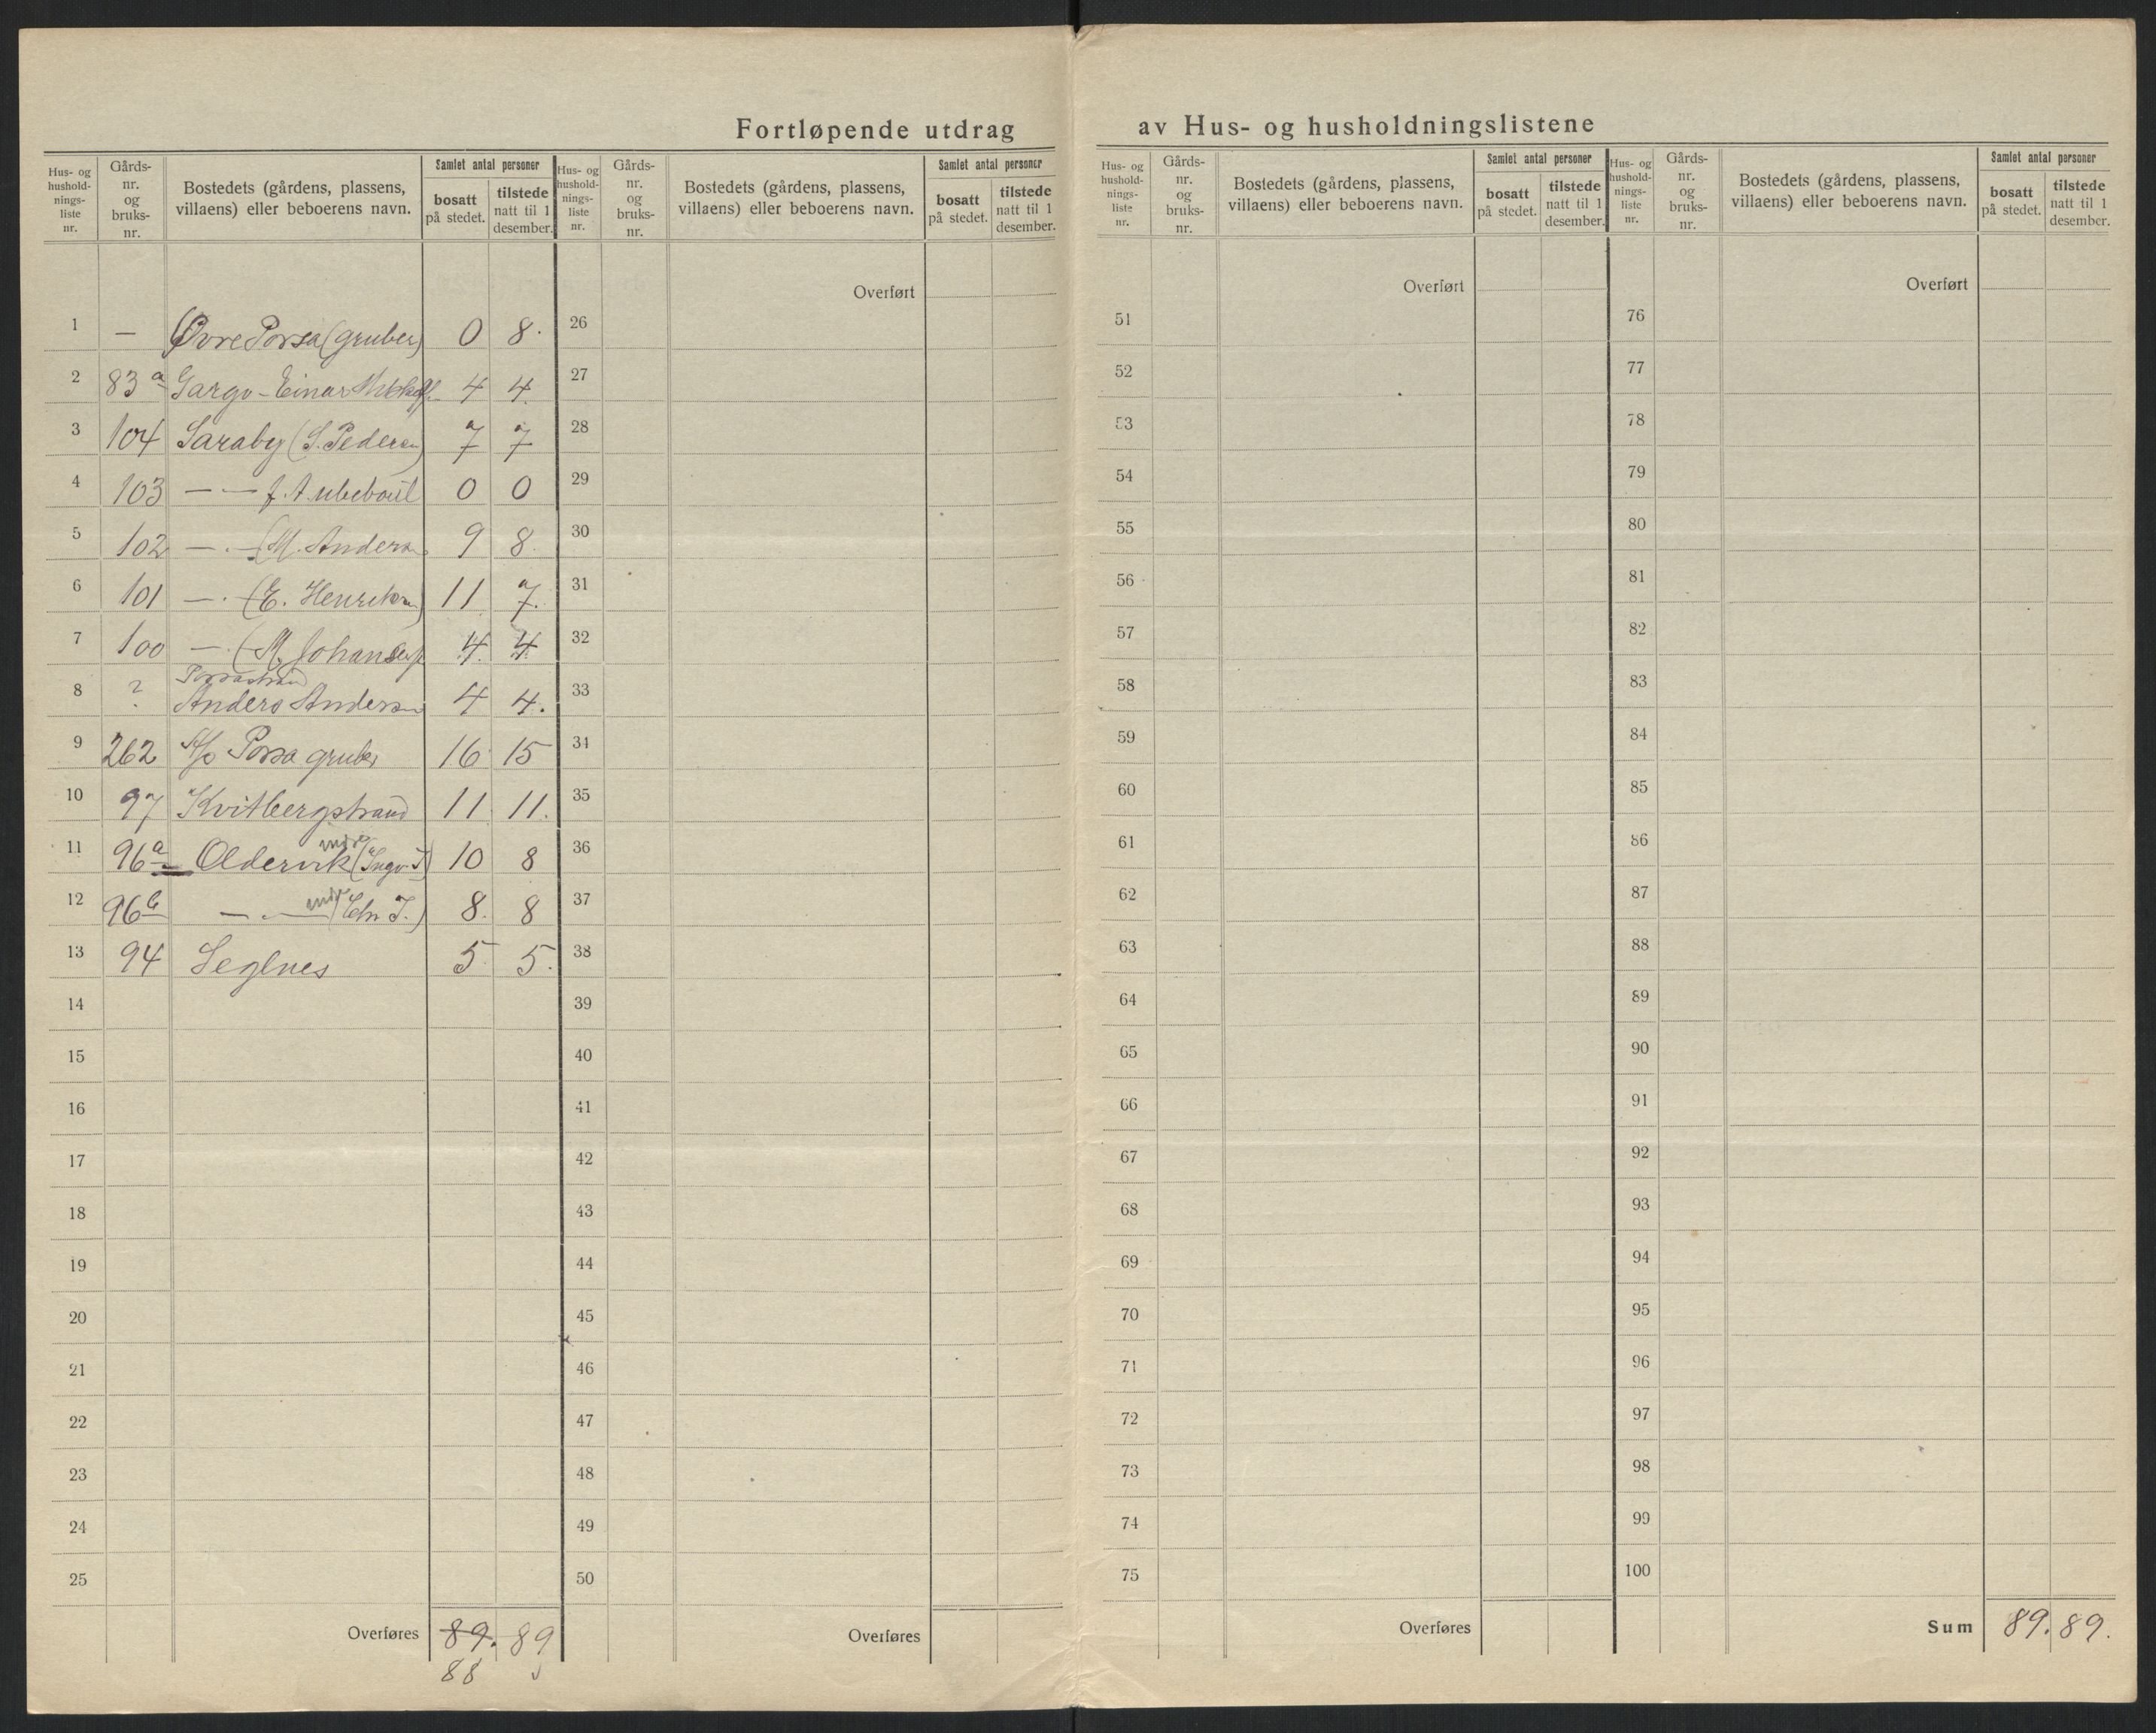 Fortløpende utdrag av Hus- og husholdningslistene
Hus- og hushold- nings- liste nr. | Gårds- nr. og bruks- nr. | Bostedets (gårdens, plassens, villaens) eller beboerens navn. | Samlet antal personer | bosatt på stedet. | tilstede natt til 1 desember.
1 — Øvre Porsa (gruber) 0 8.
2 83a Gargo - Einar 4 4.
3 104 Saraby (S. Pedersen) 7 7
4 103 — — f. A. ubeboűl 0 0
5 102 —.— (M. Andersen 9 8.
6 101 —.— (E. Henriksen) 11 7.
7 100 —.— (M. Johansen) 4. 4.
Porsastrand
8 ? Anders Andersen 4 4.
9 262 A/S Porsa gruber 16 15
10 97 Kvitbergstrand 11. 11.
indre
11 96a Oldervik (Ingv. J) 10 8
indre
12 96b —.— (Chr J.) 8. 8
13 94 Seglnes 5. 5.
14
15
16
17
18
19
20
21
22
23
24
25
Overføres 89. 89
88
Hus- og hushold- nings- liste nr. | Gårds- nr. og bruks- nr. | Bostedets (gårdens, plassens, villaens) eller beboerens navn. | Samlet antal personer | bosatt på stedet. | tilstede natt til 1 desember.
Overført
26
27
28
29
30
31
32
33
34
35
36
37
38
39
40
41
42
43
44
45
46
47
48
49
50
Overføres
Hus- og hushold- nings- liste nr. | Gårds- nr. og bruks- nr. | Bostedets (gårdens, plassens, villaens) eller beboerens navn. | Samlet antal personer | bosatt på stedet. | tilstede natt til 1 desember.
Overført
51
52
53
54
55
56
57
58
59
60
61
62
63
64
65
66
67
68
69
70
71
72
73
74
75
Overføres
Hus- og hushold- nings- liste nr. | Gårds- nr. og bruks- nr. | Bostedets (gårdens, plassens, villaens) eller beboerens navn. | Samlet antal personer | bosatt på stedet. | tilstede natt til 1 desember.
Overført
76
77
78
79
80
81
82
83
84
85
86
87
88
89
90
91
92
93
94
95
96
97
98
99
100
Sum 89. 89.